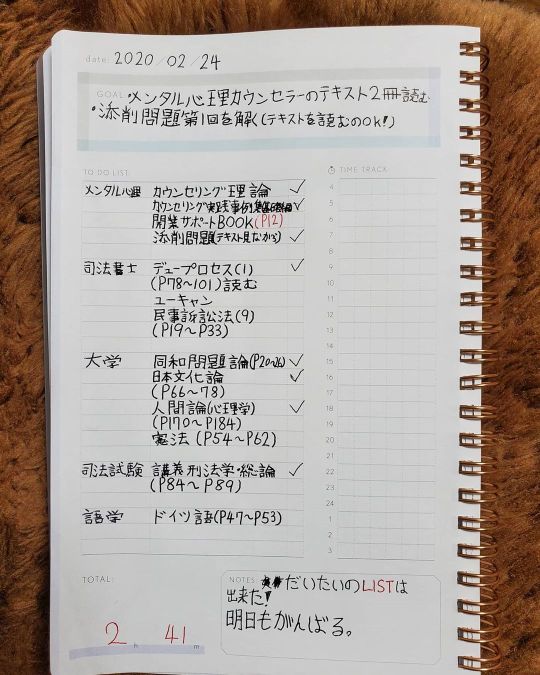 date: 2020/02/24
GOAL: ・メンタル心理カウンセラーのテキスト2冊読む
・添削問題第1回を解く(テキストを読むのOk!)
TO DO LIST: TIME TRACK:
メンタル心理 カウンセリング理論 ✓ 4
カウンセリング実践事例 ✓ 5
開業サポートBOOK(P12) 6
添削問題(テキスト見ながら) ✓ 7
8
司法書士 デュープロセス(1) ✓ 9
(P78~101)読む 10
ユーキャン 11
民事訴訟法(9) 12
(P19~P33) 13
14
大学 同和問題論(P20~26) ✓ 15
日本文化論 ✓ 16
(P66~78) 17
人間論(心理学) ✓ 18
(P170~P184) 19
憲法 (P54~P62) 20
21
司法試験 講義刑法学・総論 ✓ 22
(P84~P89) 23
24
語学 ドイツ語(P47~P53) 1
2
3
TOTAL:
2 h 41 m
NOTES: だいたいのLISTは
出来た!
明日もがんばる。